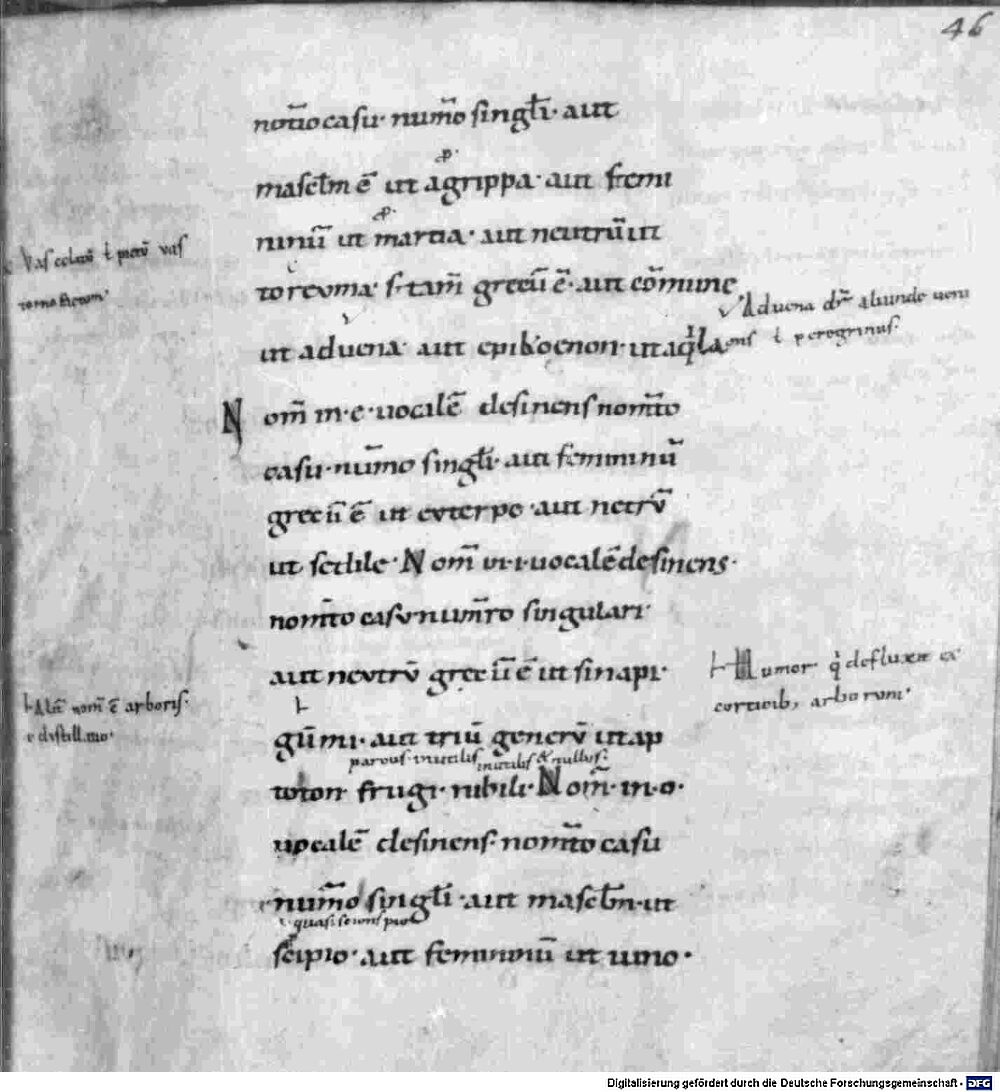 46
notio casu· num̄o singłi· aut
p·
mascłm ē ut agrippa· aut femi
p·
ninū ut martia· aut neutrū ut
Vas celatū ł pictū vas
toreuma· s; tam̄ grecū ē· aut cōmune
Aduena dr̄ aliunde ueni
ens ł peregrinus·
ut aduena· aut epikoenon· ut aqͥla
Nom̄ in·e·uocalē desinens nom̄to
casu· num̄o singłi· aut femininū
grecū ē ut euterpe· aut netrū
ut sedile· Nom̄ in·i·uocalē desinens·
nom̄to casu num̄ro singulari·
aut neutrū grecū ē ut sinapi·
Humor qͥ defluxit ex
corticib; arborum·
nom̄ ē arboris·
gūmi· aut triū generū ut ap
paruus· inutilis inutilis & nullus·
toton frugi· nihili· Nom̄· in·o·
uocalē desinens· nom̄to casu
num̄o singłi· aut mascłin· ut
quasi
scipio· aut femininū ut iuno·
Digitalisierung gefördert durch die Deutsche Forschungsgemeinschaft - DFG